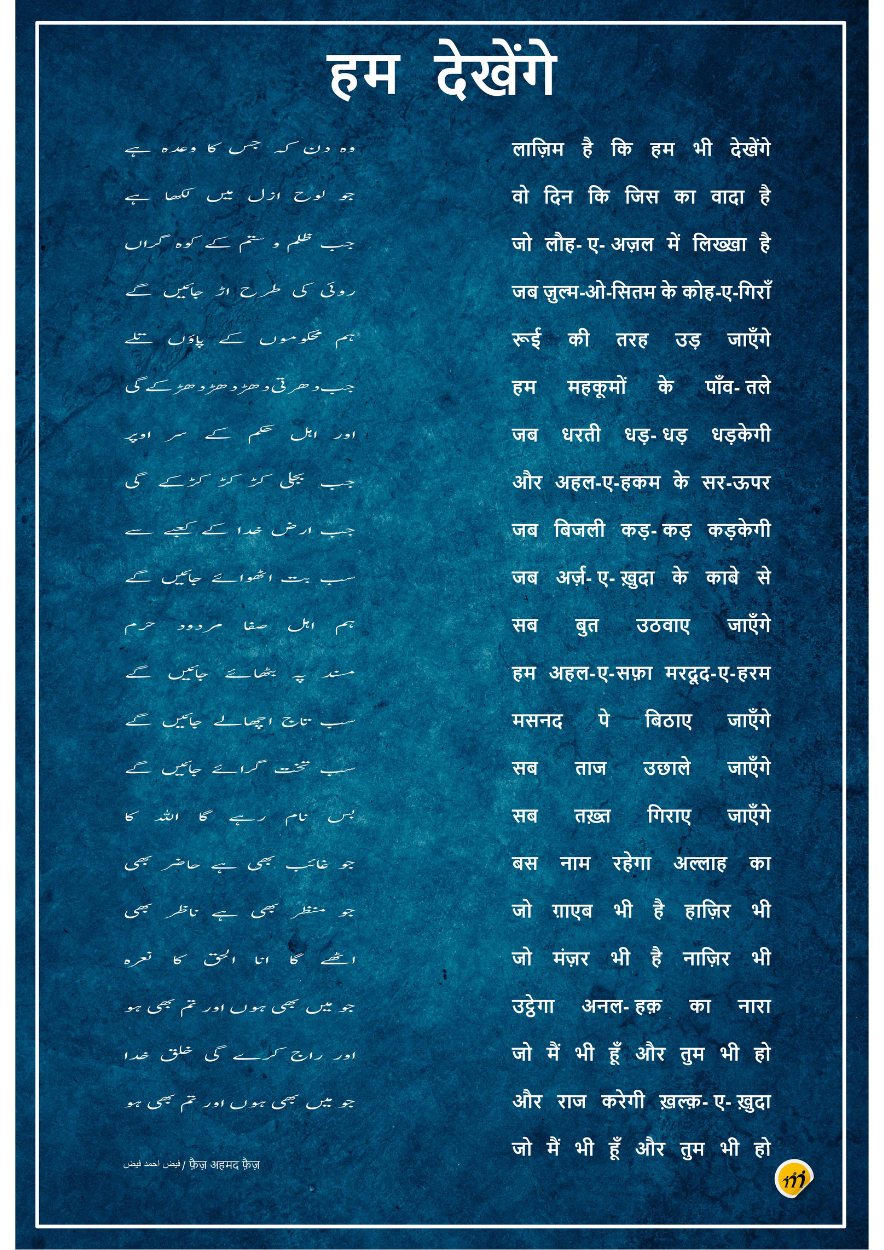 हम देखेंगे
وہ دن کہ جس کا وعدہ ہے
جو لوح ازل میں لکھا ہے
جب ظلم و ستم کے کوہ گراں
روئی کی طرح اڑ جائیں گے
ہم محکوموں کے پاؤں تلے
جب دھرتی دھڑ دھڑ دھڑکے گی
اور اہل حکم کے سر اوپر
جب بجلی کڑ کڑ کڑکے گی
جب ارض خدا کے کعبے سے
سب بت اٹھوائے جائیں گے
ہم اہل صفا مردود حرم
مسند پہ بٹھائے جائیں گے
سب تاج اچھالے جائیں گے
سب تخت گرائے جائیں گے
بس نام رہے گا اللہ کا
جو غائب بھی ہے حاضر بھی
جو منظر بھی ہے ناظر بھی
اٹھے گا انا الحق کا نعرہ
جو میں بھی ہوں اور تم بھی ہو
اور راج کرے گی خلق خدا
جو میں بھی ہوں اور تم بھی ہو
فیض احمد فیض / फ़ैज़ अहमद फ़ैज़
लाज़िम है कि हम भी देखेंगे
वो दिन कि जिस का वादा है
जो लौह- ए- अज़ल में लिख्खा है
जब ज़ुल्म-ओ-सितम के कोह-ए-गिराँ
रूई की तरह उड़ जाएँगे
हम महकूमों के पाँव- तले
जब धरती धड़- धड़ धड़केगी
और अहल-ए-हकम के सर-ऊपर
जब बिजली कड़- कड़ कड़केगी
जब अर्ज़- ए- ख़ुदा के काबे से
सब बुत उठवाए जाएँगे
हम अहल-ए-सफ़ा मरदूद-ए-हरम
मसनद पे बिठाए जाएँगे
सब ताज उछाले जाएँगे
सब तख़्त गिराए जाएँगे
बस नाम रहेगा अल्लाह का
जो ग़ाएब भी है हाज़िर भी
जो मंज़र भी है नाज़िर भी
उट्ठेगा अनल- हक़ का नारा
जो मैं भी हूँ और तुम भी हो
और राज करेगी ख़ल्क़- ए- ख़ुदा
जो मैं भी हूँ और तुम भी हो
m